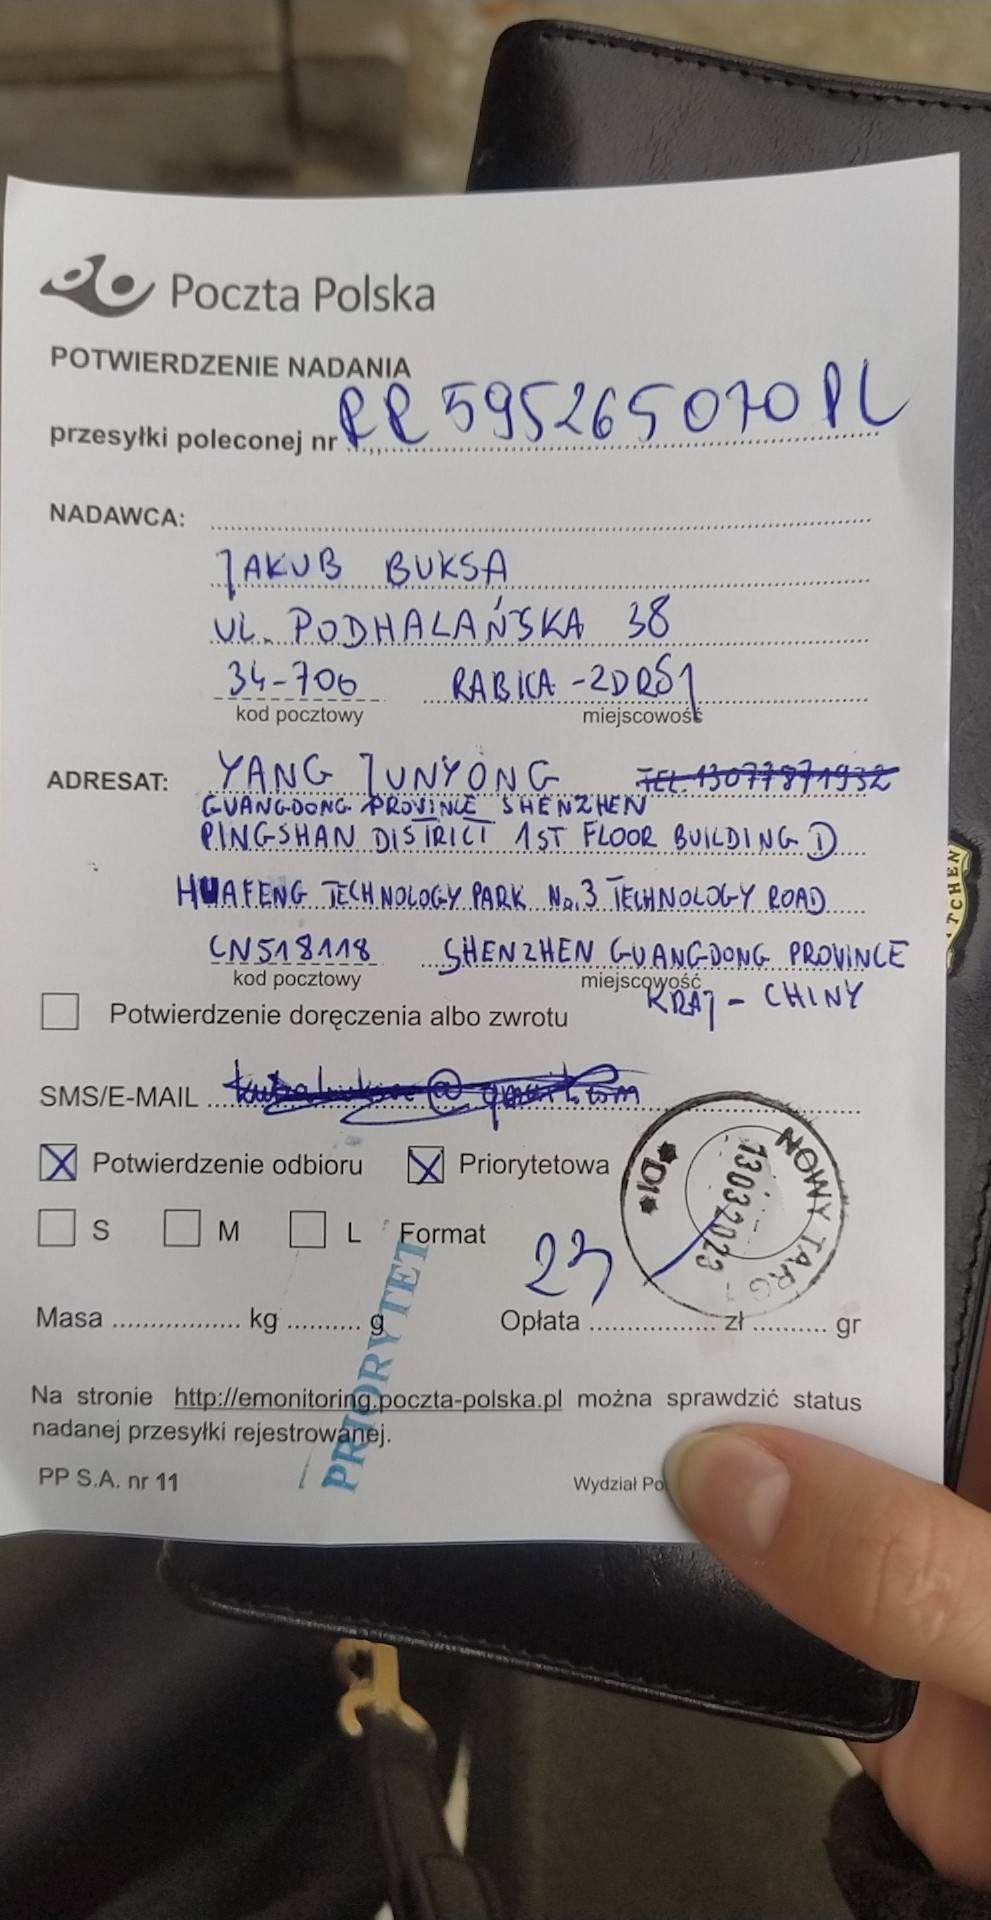 Poczta Polska
POTWIERDZENIE NADANIA
przesyłki poleconej nr RR 595265070 PL
NADAWCA:
JAKUB BUKSA
UL. PODHALAŃSKA 38
34-700 RABKA-ZDRÓJ
kod pocztowy miejscowość
ADRESAT: YANG JUNYONG TEL. 13077871932
GUANGDONG PROVINCE SHENZHEN
PINGSHAN DISTRICT 1ST FLOOR BUILDING D
HUAFENG TECHNOLOGY PARK No.3 TECHNOLOGY ROAD
CN518118 SHENZHEN GUANGDONG PROVINCE
kod pocztowy miejscowość
KRAJ - CHINY
Potwierdzenie doręczenia albo zwrotu
SMS/E-MAIL
Potwierdzenie odbioru Priorytetowa
S M L Format
NOWY TARG 1
13032023
*DI*
23
Masa kg g Opłata zł gr
PRIORYTET
Na stronie http://emonitoring.poczta-polska.pl można sprawdzić status
nadanej przesyłki rejestrowanej.
PP S.A. nr 11 Wydział Po
TCHEN